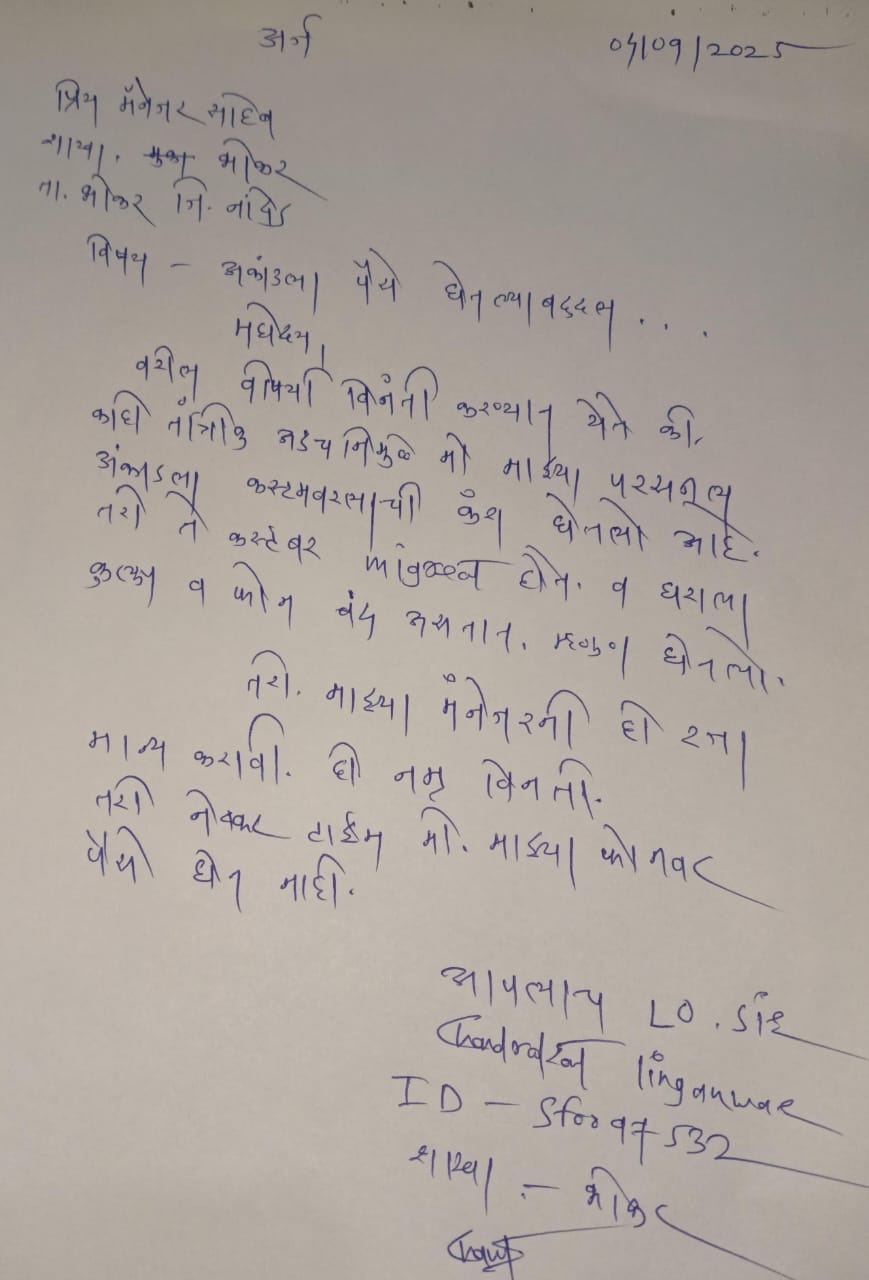 अर्ज
04/09/2025
प्रिय मॅनेजर साहेब
शाखा. भोकर
ता. भोकर जि. नांदेड
विषय - अकांउला पैसे घेतल्याबद्दल ...
महोदय,
वरील वीषयी विनंती करण्यात येते की,
काही तांत्रिक अडचनिमुळे मी माझ्या परसनल
अंकाउला कस्टमवरलाची कॅश घेतलो आहे.
तरी ते कस्टंबर होत. व घराला
कुलूप व फोन बंद असतात. म्हणुन घेतलो.
तरी. माझ्या मॅनेजरनी ही रजा
मान्य करावी. ही नम्र विनती.
तरी नेक्कट टाईम मी. माझ्या फोनवर
पैसे घेत नाही.
आपलाच LO.
Linganwar
ID -
शाखा - भोकर